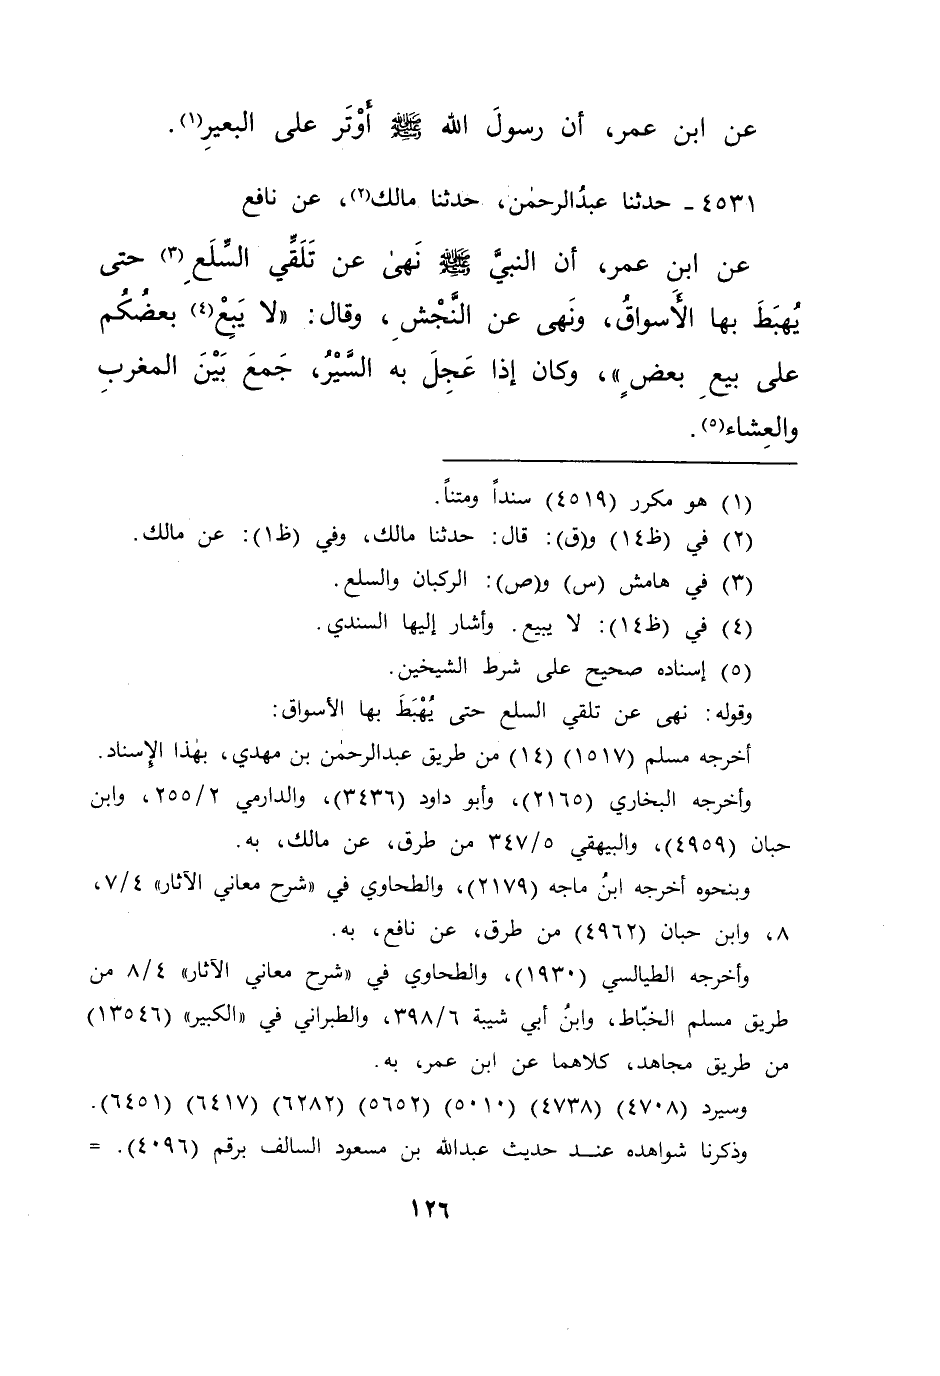 عن ابن عمر، أن رسولَ الله ﷺ أَوْتَر على البعيرِ(١).
٤٥٣١ ـ حدثنا عبدُالرحمٰن، حدثنا مالك(٢)، عن نافع
عن ابن عمر، أن النبيَّ ﷺ نَهىٰ عن تَلَقِّي السِّلَعِ(٣) حتى
يُهبَطَ بها الأَسواقُ، ونَهى عن النَّجْشِ، وقال: «لا يَبِعْ(٤) بعضُكُم
على بيعِ بعضٍ»، وكان إذا عَجِلَ به السَّيْرُ، جَمعَ بَيْنَ المغربِ
والعِشاء(٥).
(١) هو مكرر (٤٥١٩) سنداً ومتناً.
(٢) في (ظ١٤) و(ق): قال: حدثنا مالك، وفي (ظ١): عن مالك.
(٣) في هامش (س) و(ص): الركبان والسلع.
(٤) في (ظ١٤): لا يبيع. وأشار إليها السندي.
(٥) إسناده صحيح على شرط الشيخين.
وقوله: نهى عن تلقي السلع حتى يُهْبَطَ بها الأسواق:
أخرجه مسلم (١٥١٧) (١٤) من طريق عبدالرحمٰن بن مهدي، بهٰذا الإِسناد.
وأخرجه البخاري (٢١٦٥)، وأبو داود (٣٤٣٦)، والدارمي ٢٥٥/٢، وابن
حبان (٤٩٥٩)، والبيهقي ٣٤٧/٥ من طرق، عن مالك، به.
وبنحوه أخرجه ابنُ ماجه (٢١٧٩)، والطحاوي في «شرح معاني الآثار» ٧/٤،
٨، وابن حبان (٤٩٦٢) من طرق، عن نافع، به.
وأخرجه الطيالسي (١٩٣٠)، والطحاوي في «شرح معاني الآثار» ٨/٤ من
طريق مسلم الخبّاط، وابنُ أبي شيبة ٣٩٨/٦، والطبراني في «الكبير» (١٣٥٤٦)
من طريق مجاهد، كلاهما عن ابن عمر، به.
وسيرد (٤٧٠٨) (٤٧٣٨) (٥٠١٠) (٥٦٥٢) (٦٢٨٢) (٦٤١٧) (٦٤٥١).
وذكرنا شواهده عنـد حديث عبدالله بن مسعود السالف برقم (٤٠٩٦). =
١٢٦